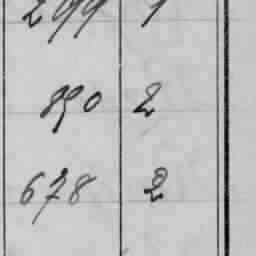 299 1
890 2
678 2